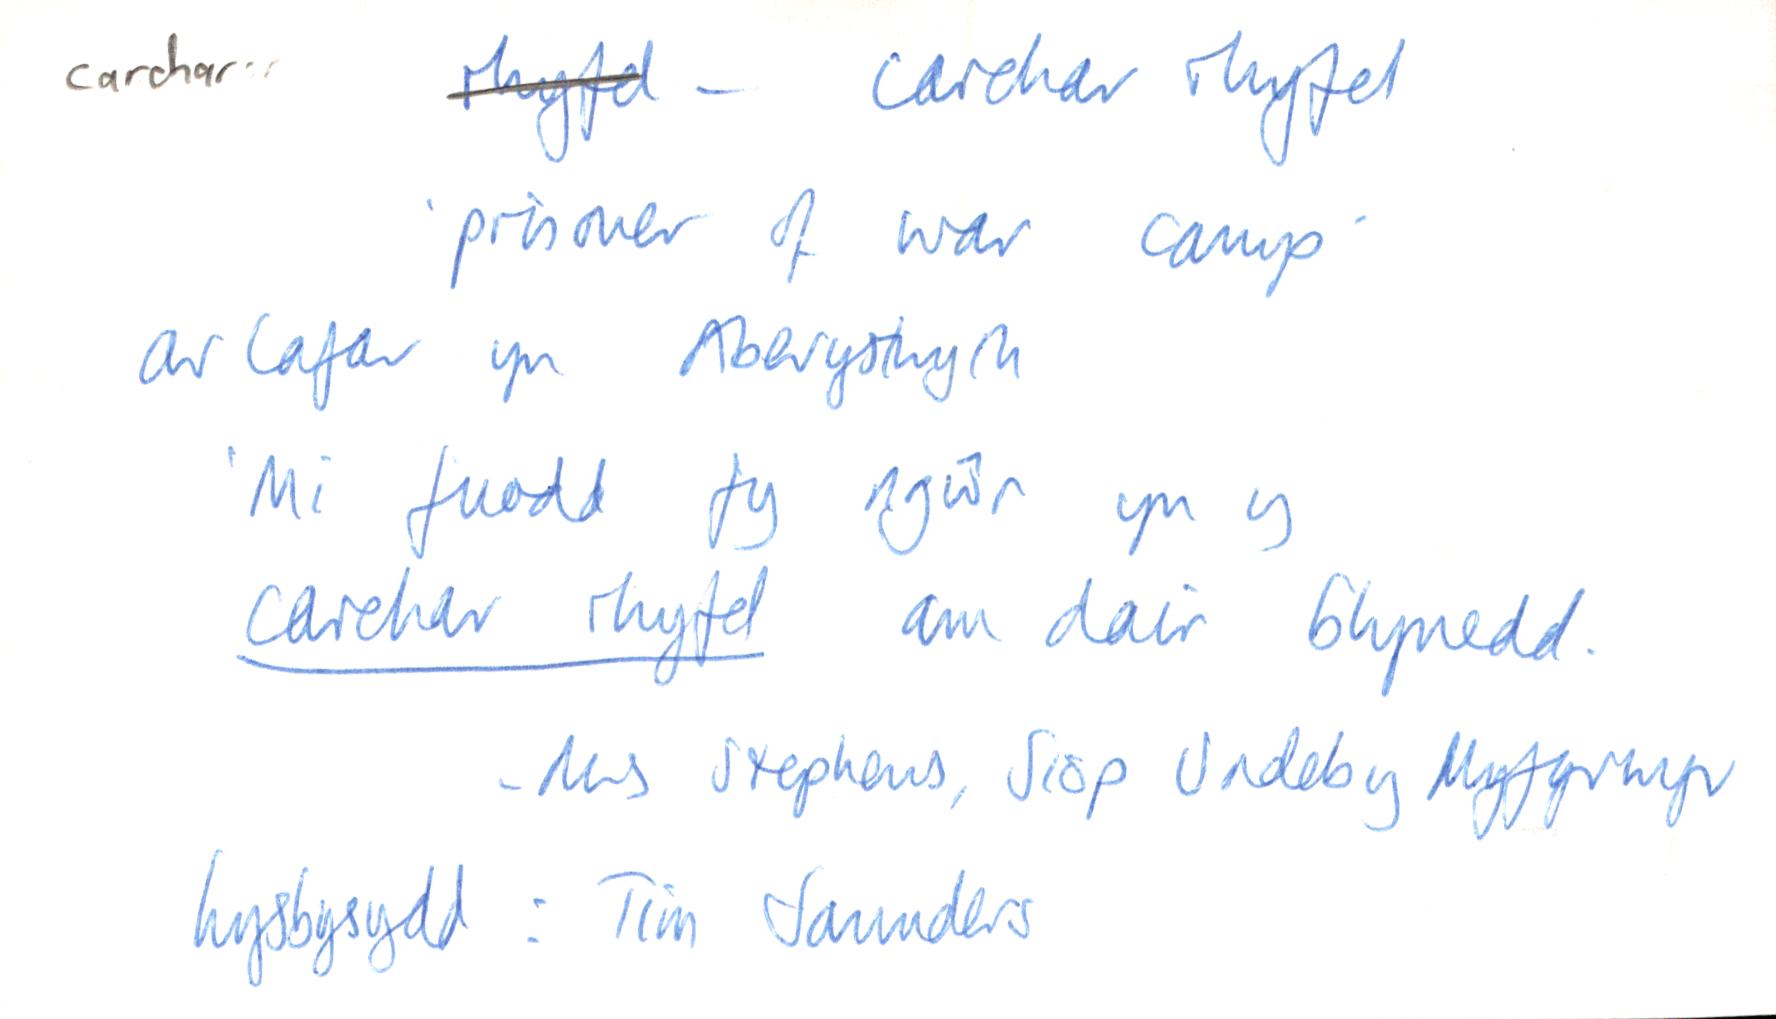 carchar rhyfel - carchar rhyfel
'prisoner of war camp'
ar lafar yn Aberystwyth
'Mi fuodd fy ngŵr yn y
carchar rhyfel am dair blynedd.
- Mrs Stephens, Siop Undeb y Myfyrwyr
hysbysydd : Tim Saunders